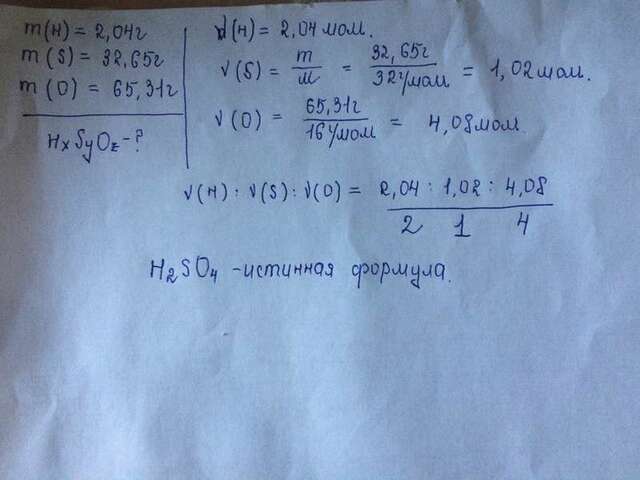 m(H) = 2,04г
m(S) = 32,65г
m(O) = 65,31г
HxSyOz - ?
ν(H) = 2,04 мом.
ν(S) = m/M = 32,65г/32г/мом = 1,02 мом.
ν(O) = 65,31г/16г/мом = 4,08 мом
ν(H) : ν(S) : ν(O) = 2,04 : 1,02 : 4,08
2 1 4
H₂SO₄ - истинная формула.